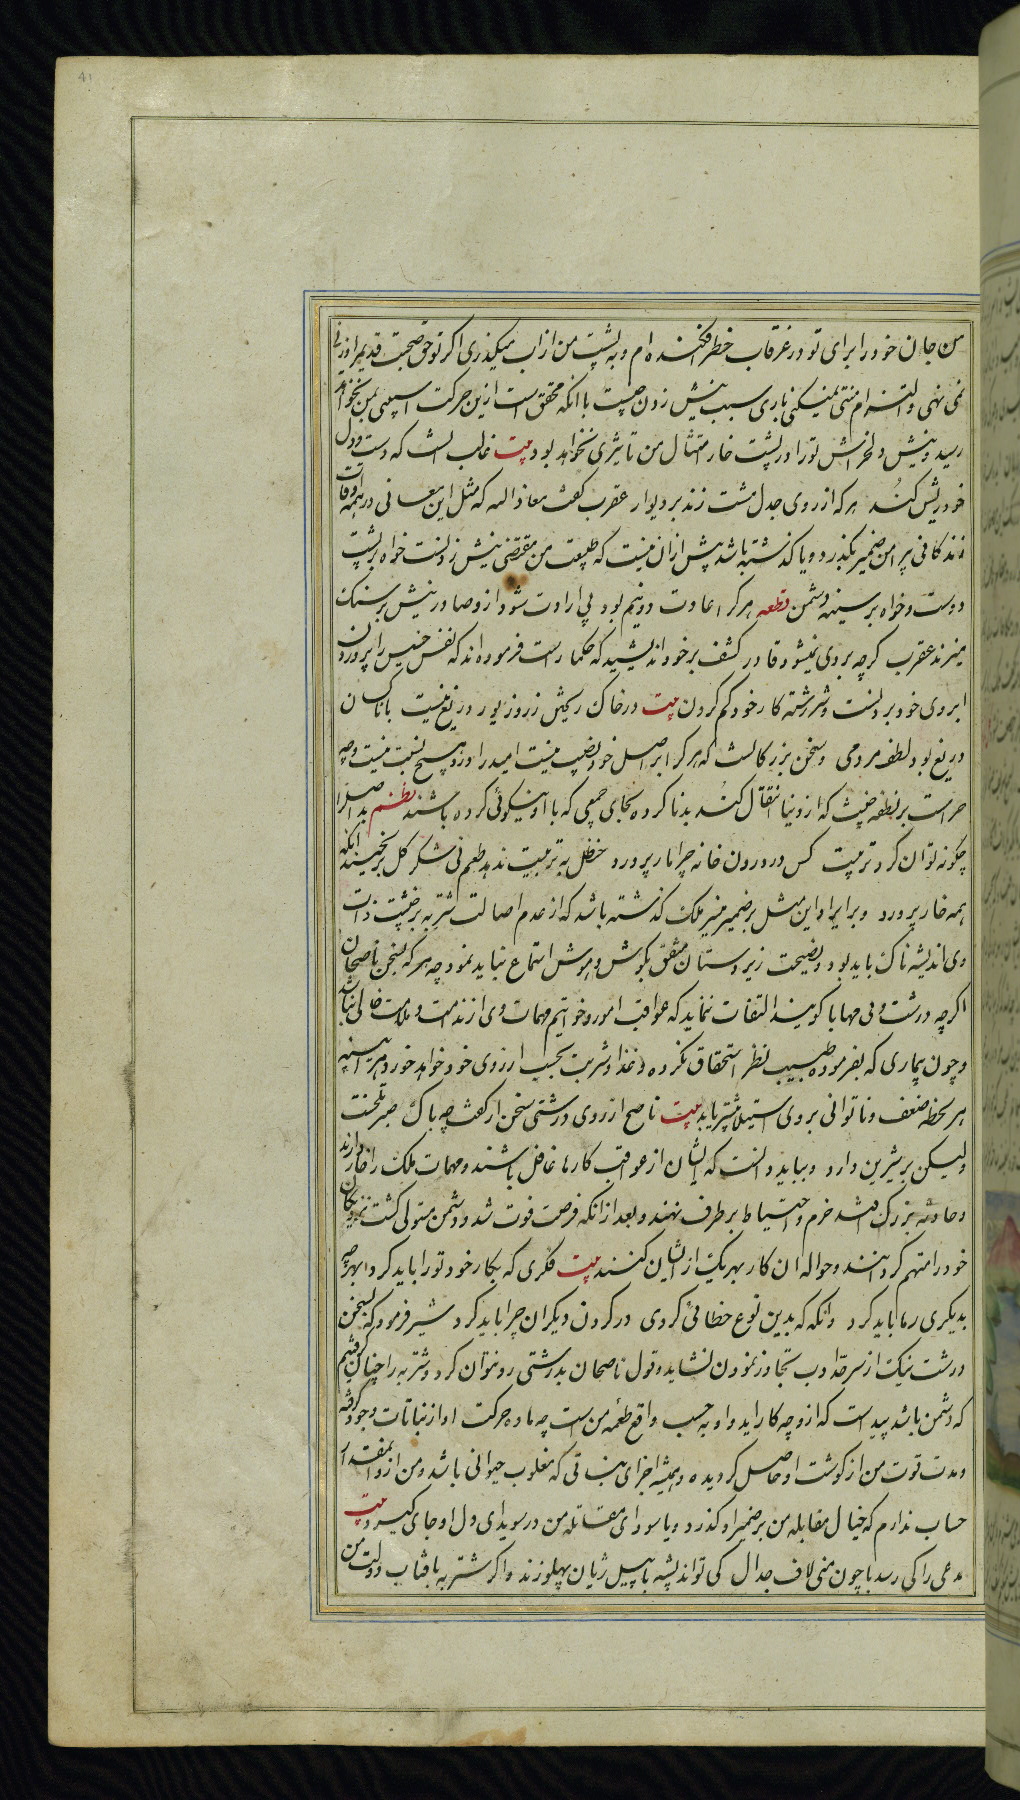 من جان خود را برای تو در غرقاب خطر افکنده ام و به پشت من از اب میگذری اگر تو حق صحبت قدیم را وزنی
نمی نهی و التزام منتی نمیکنی باری سبب نیش زدن چیست با انکه محقق است ازین حرکت اسیبی بمن نخواهد
رسید و نیش دلخراش تو را در پشت خارا مثال من تاثیری نخواهد بود بیت غالب انست که دست و دل
خود ریش کند هر که از روی جدل مشت زند بر دیوار عقرب گفت معاذ الله که مثل این معانی در همه اوقات
زندگانی پیرامن ضمیر بگذرد و یا گذشته باشد بیش ازان نیست که طبیعت من مقتضی نیش زدنست خواه بر پشت
دوست و خواه بر سینه دشمن قطعه هر کرا عادت ذمیم بود بی ارادت شود ازو صادر نیش بر سنک
میزند عقرب گرچه بروی نمیشود قادر کشف بر خود اندیشید که حکما راست فرموده اند که نفس خسیس را پروردن
ابروی خود بردنست و سررشته کار خود گم کردن بیت در خاک ریختن زر و زیور دریغ نیست با ناکسان
دریغ بود لطف مردمی و سخن بزرگانست که هر کرا بر اصل خود نصیب نیست امید را ازو هیچ نسبت نیست و چه
حرامست بر نطفه خبیث که از دنیا انتقال کند بد ناکرده بجای جمعی که با او نیکوئی کرده باشند نظم بد اصل را
چگونه توان کرد تربیت کس در درون خانه چرا مار پرورد حنظل به تربیت ندهد طعم نی شکر گل بر نچیند انکه
همه خار پرورد و برای ایراد این مثل بر ضمیر منیر ملک گذشته باشد که از عدم اصالت شتربه بر خبیثت ذات
وی اندیشه ناک باید بود و نصیحت زیردستان مشفق بگوش هوش استماع نباید نمود چه هر که بسخن ناصحان
اگرچه درشت و بی محابا گویند التفات ننماید که عواقب امور و خواتیم مهمات وی از ندامت و ملامت خالی نباشد
و چون بیماری که بفرموده طبیب نظر استحقاق نکرده و غذا و شربت بحسب ارزوی خود خواهد خورد هراینه
هر لحظه ضعف و ناتوانی بروی استیلا بیشتر یابد بیت ناصح از روی درشتی سخن ار گفت چه باک صبر تلخست
ولیکن بر شیرین دارد و بباید دانست که ایشان از عواقب کارها غافل باشند و مهمات ملک را خوار دارند
و حادثه بزرک افتد حزم و احتیاط بر طرف نهند و بعد ازانکه فرصت فوت شد و دشمن مستولی گشت نزدیکان
خود را متهم گردانند و حواله ان کار بهر یک از ایشان کنند بیت فکری که بکار خود تو را باید کرد بهر چه
بدیگری رها باید کرد وانگه که بدین نوع خطائی کردی در گردن دیگران چرا باید کرد شیر فرمود که سخن
درشت نیک از سرحد ادب تجاوز نمودن نشاید و قول ناصحان بدرشتی رد نتوان کرد و شتربه را چنان گیریم
که دشمن باشد پیداست که ازو چه کار اید و او به حسب واقع طعمه من است چه ماده حرکت او از نباتات وجود گرفته
و مدت قوت من از گوشت او حاصل گردیده و همیشه اجزای نباتی که مغلوب حیوانی باشد و من ازو انمقدار
حساب ندارم که خیال مقابله من بر ضمیر او گذرد و یا سودای مقاتله من در سویدای دل او جای گیرد بیت
مدعی را کی رسد با چون منی لاف جدال کی تواند پشه با پیل ژیان پهلو زند و اگر شتربه با افتاب دولت من